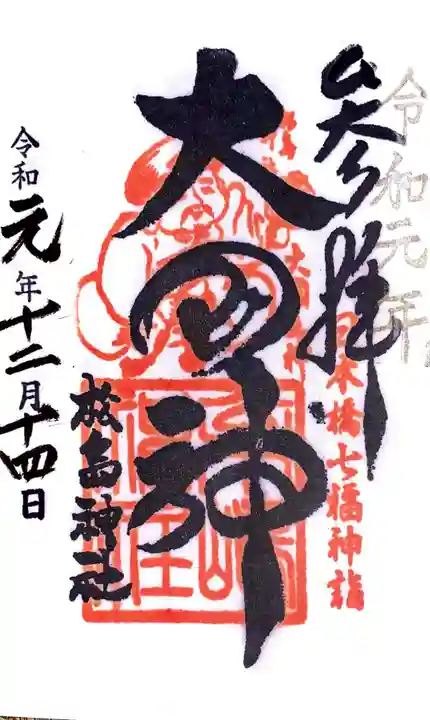 令和元年
参拝
日本橋七福神詣
大国神
松島神社
令和元年十二月十四日